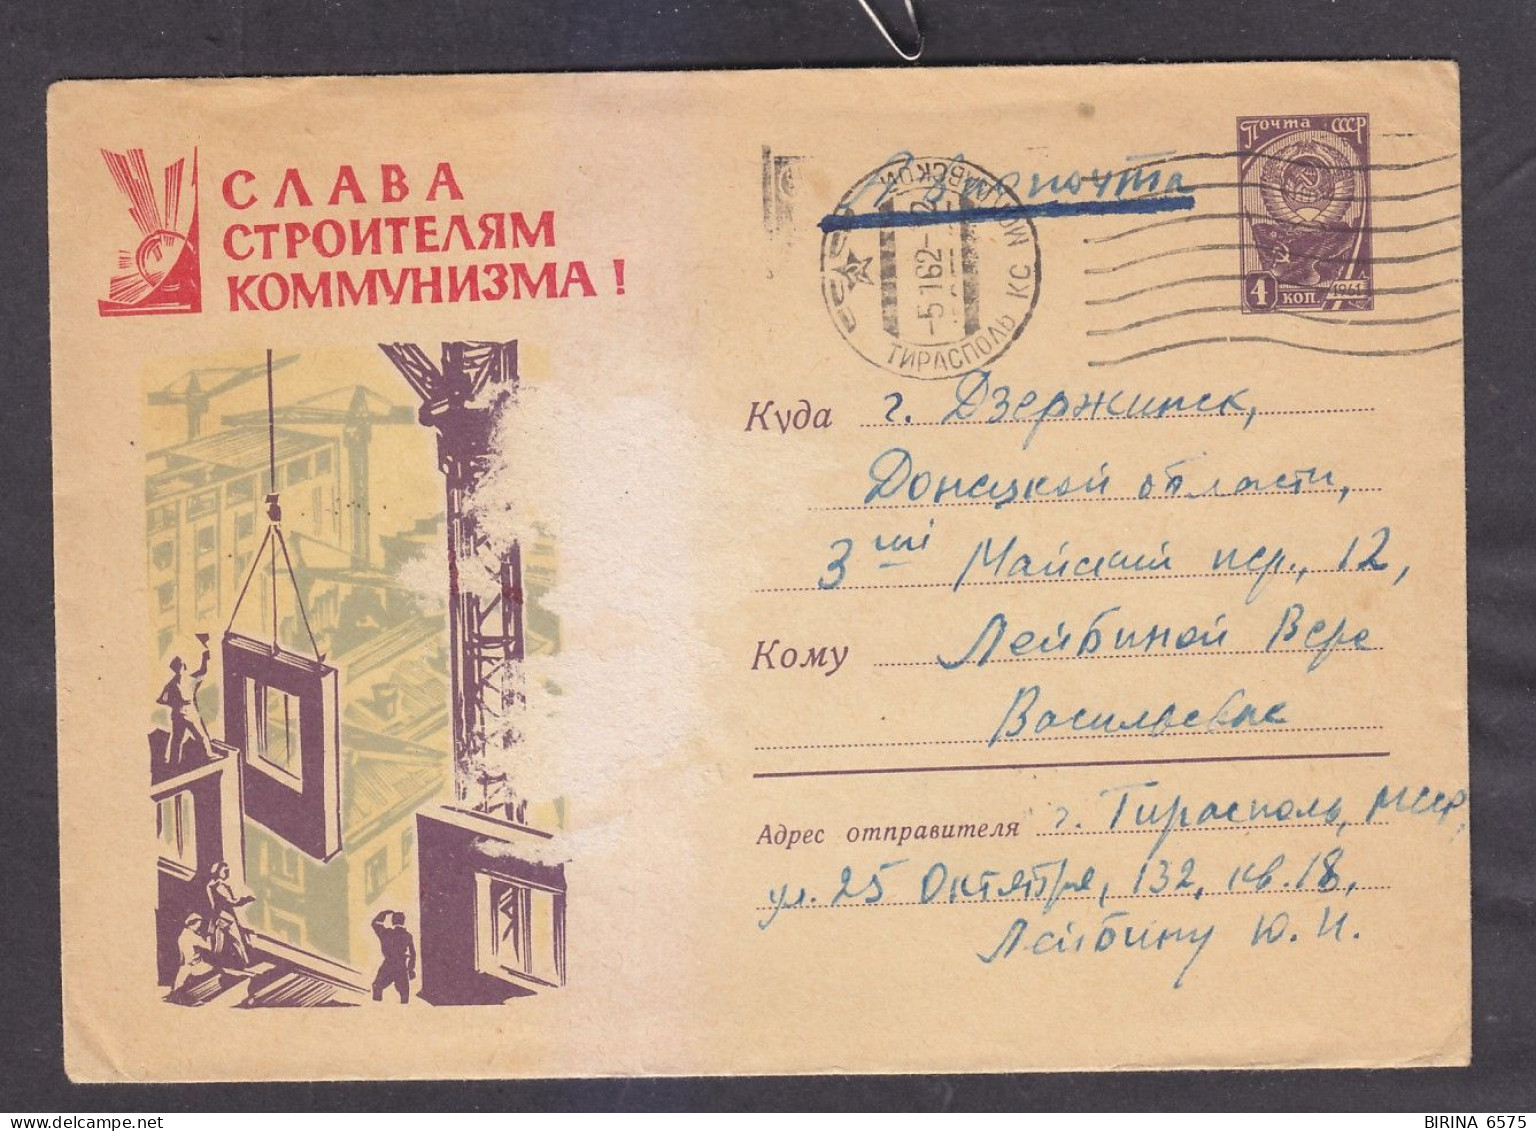 СЛАВА
СТРОИТЕЛЯМ
КОММУНИЗМА !
Почта СССР
4 КОП. 1961
Авиапочта
ТИРАСПОЛЬ КС МОЛДАВСКОЙ
-5 1 62
Куда г. Дзержинск,
Донецкой области,
3ий Майский пер., 12,
Кому Лейбиной Вере
Васильевне
Адрес отправителя г. Тирасполь, МССР,
ул. 25 Октября, 132, кв. 18,
Лейбину Ю. И.
BIRINA 6575